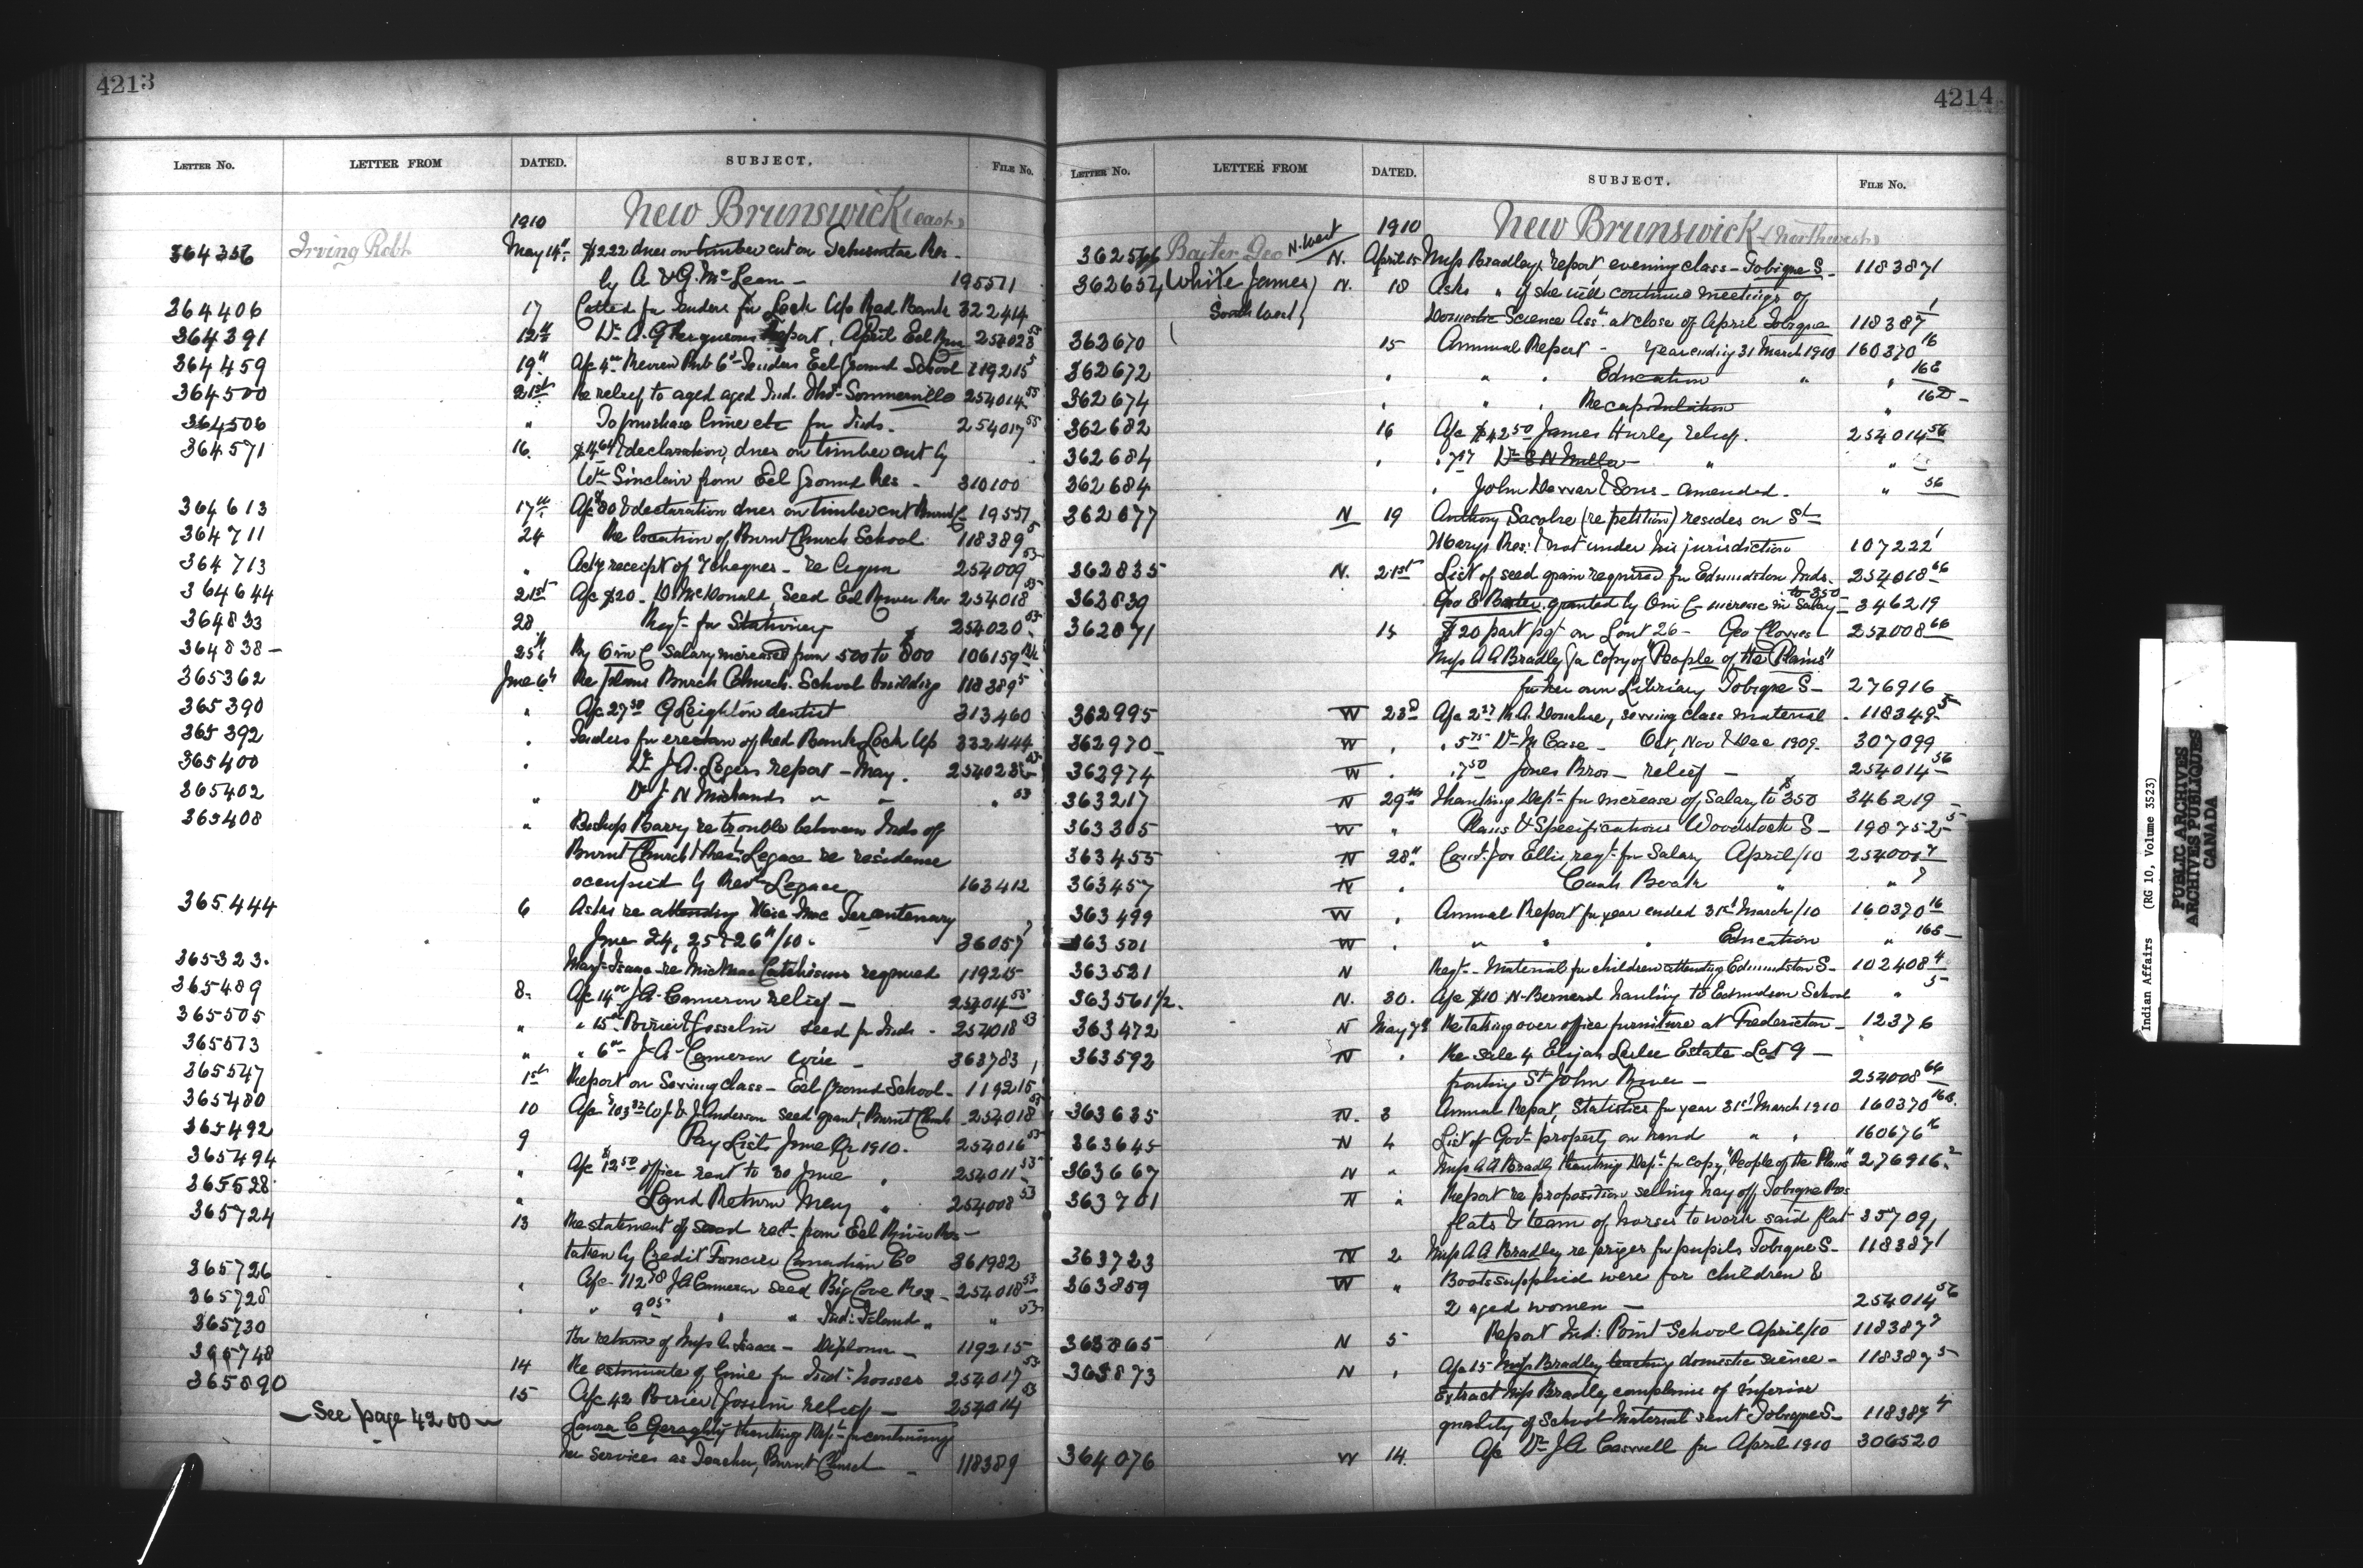 4213
LETTER No. LETTER FROM DATED. SUBJECT. FILE No.
1910 New Brunswick (east)
364356 Irving Robt May 14th $222 dues on timber cut on Tabusintac Res.
by A & G. McLean - 195571
364406 17 Called for tenders for Lock Up Red Bank 322414
364391 12th Dr. A. G. Ferguson Report, April Eel 254028 53
364459 19th 6th Tenders Eel Ground School 119215 5
364500 21st Re relief to aged aged Ind. Thos. Sommerville 254014 55
364506 " To purchase lime etc for Inds. 254017 55
364571 16. & declaration, dues on timber cut by
Wm Sinclair from Eel Ground Res - 310100
364613 17th A/c $80 & declaration dues on timber cut 19557
364711 24 Re location of Burnt Church School 118389 5
364713 " Ackg receipt of 7 cheques - re 254009 53
364644 21st A/c $20 - D. McDonald, Seed Eel River Res 254018 53
364833 28 Reqt for Stationery 254020 53
364838 - 25th By O in C Salary increased from 500 to $800 106159
365362 June 6th Re Plans Burnt Church School building 118389 5
365390 " A/c 27 50 G Leighton dentist 313460
365392 " Tenders for erection of Red Bank Lock Up 332444
365400 " Dr J. A. Legers report - May. 254028 53
365402 " Dr J N Michauds " " " 53
365408 " Bishop Barry re trouble between Inds of
Burnt Church & Revd Legace re residence
occupied by Revd Legace 163412
365444 6 Asks re attending Tercentenary
June 24, 25 & 26th/10. 36057
365323. Mary Isaac re MicMac Catechisms required 119215
365489 8. A/c 14 J.A. Cameron relief - 254014 53
365505 " " 15 Poirier & Gosselin seed for Inds - 254018 53
365573 " " 6 J. A. Cameron wire - 363783
365547 1st Report on Sewing class - Eel Ground School - 119215
365480 10 A/c $103 W. J. & J. Anderson seed grant, Burnt Church 254018 53
365492 9 Pay Lists June Qr 1910. 254016 53
365494 " A/c $12 50 office rent to 30 June 254011 53
365528 " Land Return May " 254008 53
365724 13 Re statement of seed rect from Eel River Res -
taken by Credit Foncier Canadian Co 361982
365726 " A/c 112 78 J A Cameron seed Big Cove Res - 254018 53
365728 " " 9 05 " " Ind: Island " " 53
365730 Re return of Miss A. Isaac - Diploma - 119215
365748 14 Re estimate of lime for Ind: houses 254017 53
365890 15 A/c 42 Poirier & Gosselin relief - 254014 53
- See page 4200 - Laura C Geraghty thanking Dept for continuing
her services as Teacher, Burnt Church - 118389
4214
LETTER No. LETTER FROM DATED. SUBJECT. FILE No.
1910 New Brunswick (Northwest)
362566 Baxter Geo N. West N. April 15 Miss Bradley's report evening class - Tobique S. 118387 1
362654 White James N. 18 Asks " if she will continue meetings of
South West Domestic Science Assn. at close of April Tobique 118387 1
362670 15 Annual Report - Year ending 31 March 1910 160370 16
362672 " " " Education " " 16 B
362674 " " " Recapitulation " 16 D -
362682 16 A/c $42 50 James Hurley relief. 254014 56
362684 " " 7 Dr E N Miller " "
362684 " John Dewar & Sons - amended. " 56
362677 N 19 Anthony Sacobie (re petition) resides on St
Marys Res: & not under his jurisdiction 107222 1
362835 N. 21st List of seed grain required for Edmundston Inds. 254018 66
362839 Geo E Baxter granted by O in C increase in Salary to 350 - 346219
362871 15 $20 part pyt on Lot 26 - Geo Clowes 254008 66
Miss A A Bradley for copy of "People of the Plains"
for her own Library Tobique S - 276916
362995 W 23d A/c 2 M. A. Donahue, sewing class material 118349 5
362970 - W " " 5 75 Dr M Case - Oct, Nov & Dec 1909. 307099
362974 W " " 7 50 Jones Bros - relief - 254014 56
363217 N 29th Thanking Dept for increase of Salary to $350 346219
363305 W " Plans & Specifications Woodstock S - 198752 5
363455 N 28th Const. Jos Ellis, reqt for Salary April/10 254001
363457 N " Cash Book " "
363499 W " Annual Report for year ended 31st March/10 160370 16
363501 W " " " " Education " 16 B -
363521 N Reqt - Material for children attending Edmundston S - 102408 4
363561 1/2. N. 30. A/c $10 N. Bernard hauling to Edmundston School " 5
363472 N May 7th Re taking over office furniture at Fredericton - 12376
363592 N " Re sale of Elijah Leslee Estate Lot 9 -
fronting St John River - 254008 66
363635 N. 3 Annual Report, Statistics for year 31st March 1910 160370 16 B.
363645 N 4 List of Govt property on hand " " 160676 16
363667 N " Miss A A Bradly thanking Dept for copy, "People of the Plains" 276916 2
363701 N " Report re proposition selling hay off Tobique Res
flats & team of horses to work said flat 35709
363723 N 2 Miss A A Bradley re prizes for pupils Tobique S - 118387 1
363859 W " Boots supplied were for children &
2 aged women - 254014 56
363865 N 5 Report Ind: Point School April/10 118387 7
363873 N " A/c 15 Miss Bradley teaching domestic science - 118387 5
Extract Miss Bradley complains of inferior
quality of School Material sent Tobique S - 118387 4
364076 W 14. A/c Dr J A Caswell for April 1910 306520
Indian Affairs (RG 10, Volume 3523)
PUBLIC ARCHIVES
ARCHIVES PUBLIQUES
CANADA